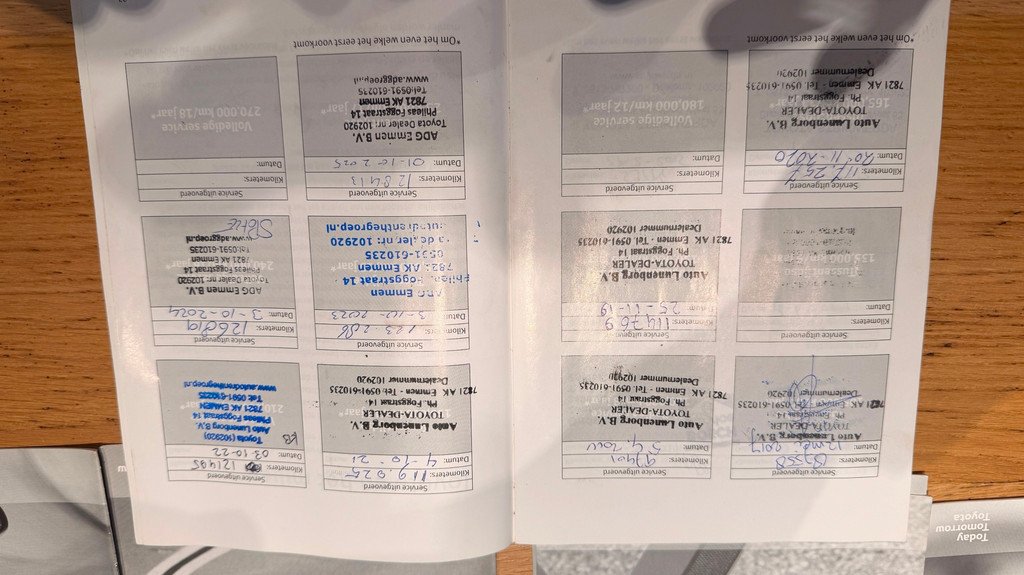 Today
Tomorrow
Toyota
Service uitgevoerd
Kilometers:
Datum: 12 mei 2017
Auto Lunenborg B.V.
TOYOTA-DEALER
Ph. Foggstraat 14
7821 AK Emmen - Tel. 0591-610235
Dealernummer 102920
Service uitgevoerd
Kilometers:
Datum:
Auto Lunenborg B.V.
TOYOTA-DEALER
Ph. Foggstraat 14
7821 AK Emmen - Tel. 0591-610235
Dealernummer 102920
Service uitgevoerd
Kilometers:
Datum:
Service uitgevoerd
Kilometers: 114769
Datum: 25-11-19
Auto Lunenborg B.V.
TOYOTA-DEALER
Ph. Foggstraat 14
7821 AK Emmen - Tel. 0591-610235
Dealernummer 102920
Service uitgevoerd
Kilometers: 117 257
Datum: 20-11-2020
Auto Lunenborg B.V.
TOYOTA-DEALER
Ph. Foggstraat 14
7821 AK Emmen - Tel. 0591-610235
Dealernummer 102920
Service uitgevoerd
Kilometers:
Datum:
Volledige service
180.000 km/12 jaar*
*Om het even welke het eerst voorkomt
Service uitgevoerd
Kilometers: 119.925
Datum: 4-10-21
Auto Lunenborg B.V.
TOYOTA-DEALER
Ph. Foggstraat 14
7821 AK Emmen - Tel. 0591-610235
Dealernummer 102920
Service uitgevoerd
Kilometers: 121485
Datum: 03-10-22
KB
Toyota (102920)
Auto Lunenborg B.V.
Phileas Foggstraat 14
7821 AK EMMEN
Tel: 0591-610235
www.autodrenthegroep.nl
Service uitgevoerd
Kilometers: 123 288
Datum: 3-10-2023
ADG Emmen
Phileas Foggstraat 14
7821 AK Emmen
0591-610235
a dealer nr: 102920
autodrenthegroep.nl
Service uitgevoerd
Kilometers: 126819
Datum: 3-10-2024
ADG Emmen B.V.
Toyota Dealer nr: 102920
Phileas Foggstraat 14
7821 AK Emmen
Tel:0591-610235
www.adggroep.nl
Service uitgevoerd
Kilometers: 128413
Datum: 01-10-2025
ADG Emmen B.V.
Toyota Dealer nr: 102920
Phileas Foggstraat 14
7821 AK Emmen
Tel:0591-610235
www.adggroep.nl
Service uitgevoerd
Kilometers:
Datum:
Volledige service
270.000 km/18 jaar*
*Om het even welke het eerst voorkomt